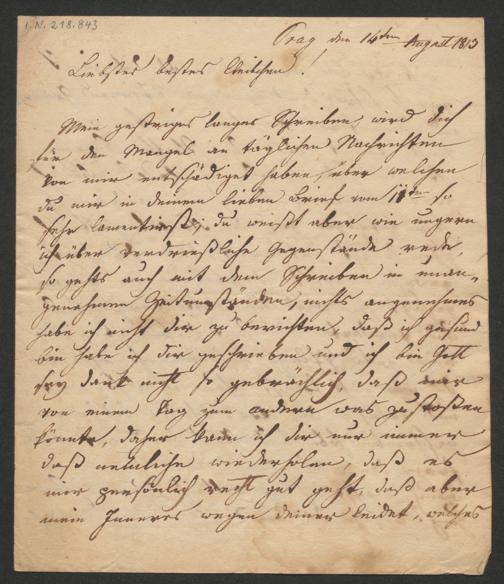 I.N. 218.843
Prag den 14ten August 1813
Liebstes bestes Weibchen!
Mein gestriges langes Schreiben, wird dich
für den Mangel an täglichen Nachrichten
von mir entschädiget haben, über welchen
du mir in deinem lieben Brief vom 11ten so
sehr lamentirst; du weißt aber wie ungern
ich über verdrießliche Gegenstände rede,
so gehts auch mit dem Schreiben in unan-
genehmen Zeitumständen, nichts angenehmes
habe ich nicht dir zu berichten, daß ich gesund
bin habe ich dir geschrieben und ich bin Gott
sey dank nicht so gebrächlich, daß mir
von einem Tag zum andern was zustoßen
könnte, daher kann ich dir nur immer
daß nemliche wiederholen, daß es
mir persönlich recht gut geht, daß aber
mein Inneres wegen deiner leidet, welches